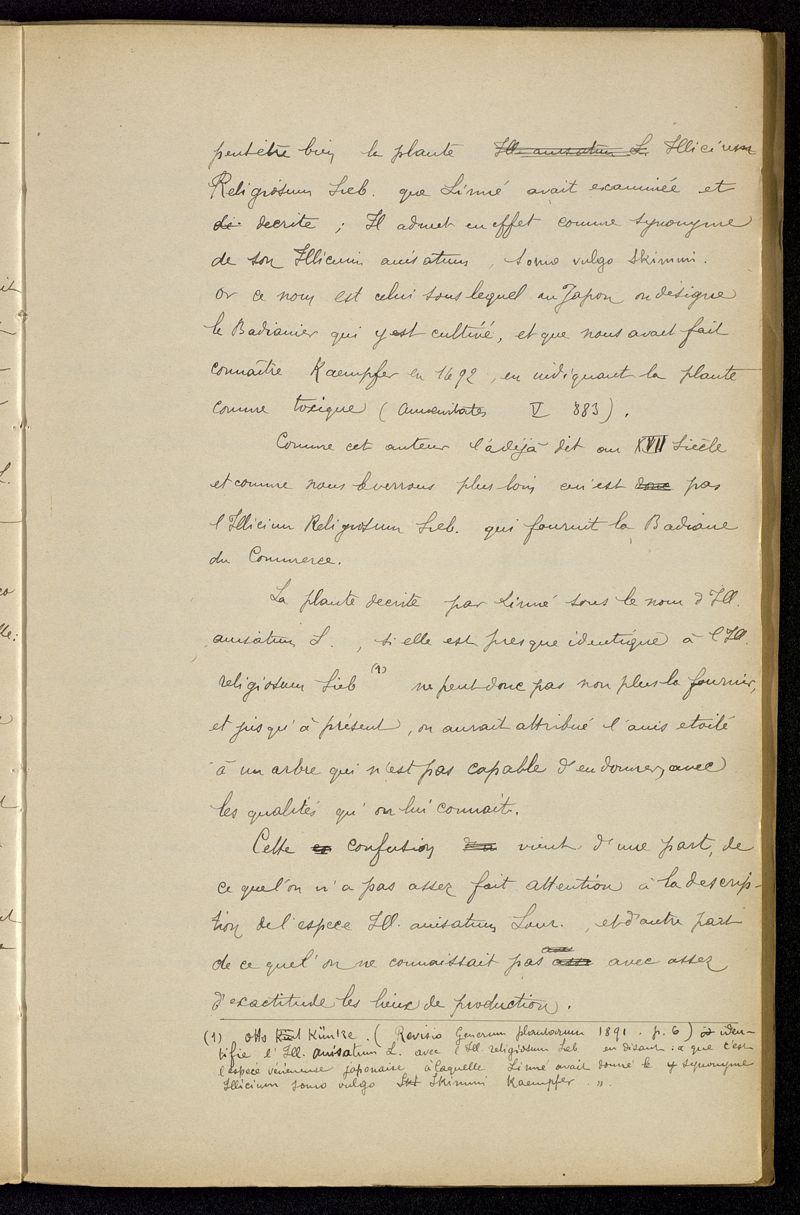 peut être bien la plante Ill. anisatum L. Illicium
Religiosum Sieb. que Linné avait examinée et
di decrite ; Il admet en effet comme synonyme
de son Illicium anisatum, somo vulgo Skimmi.
Or ce nom est celui sous lequel au Japon on désigne
le Badianier qui y est cultivé, et que nous avait fait
connaître Kaempfer en 1692, en indiquant la plante
comme toxique (Amoenitates V 883).
Comme cet auteur l'a déjà dit au XVII Siècle
et comme nous le verrons plus loin ce n'est donc pas
l'Illicium Religiosum Sieb. qui fournit la Badiane
du Commerce.
La plante decrite par Linné sous le nom d'Ill.
anisatum L., si elle est presque identique à l'Ill.
religiosum Sieb (1) ne peut donc pas non plus la fournir,
et jusqu'à présent, on aurait attribué l'anis etoilé
à un arbre qui n'est pas capable d'en donner, avec
les qualités qu'on lui connait.
Cette confusion vient d'une part, de
ce que l'on n'a pas assez fait attention à la descrip-
tion de l'espece Ill. anisatum Lour., et d'autre part
de ce que l'on ne connaissait pas assez avec assez
d'exactitude les lieux de production.
(1) Otto Künt Küntze (Revisio Generum plantarum 1891. p. 6) iden-
tifie l'Ill. anisatum L. avec l'Ill. religiosum Sieb en disant : « que c'est
l'espece vénéneuse japonaise à laquelle Linné avait donné le synonyme
Illicium somo vulgo Skimmi Kaempfer. ».